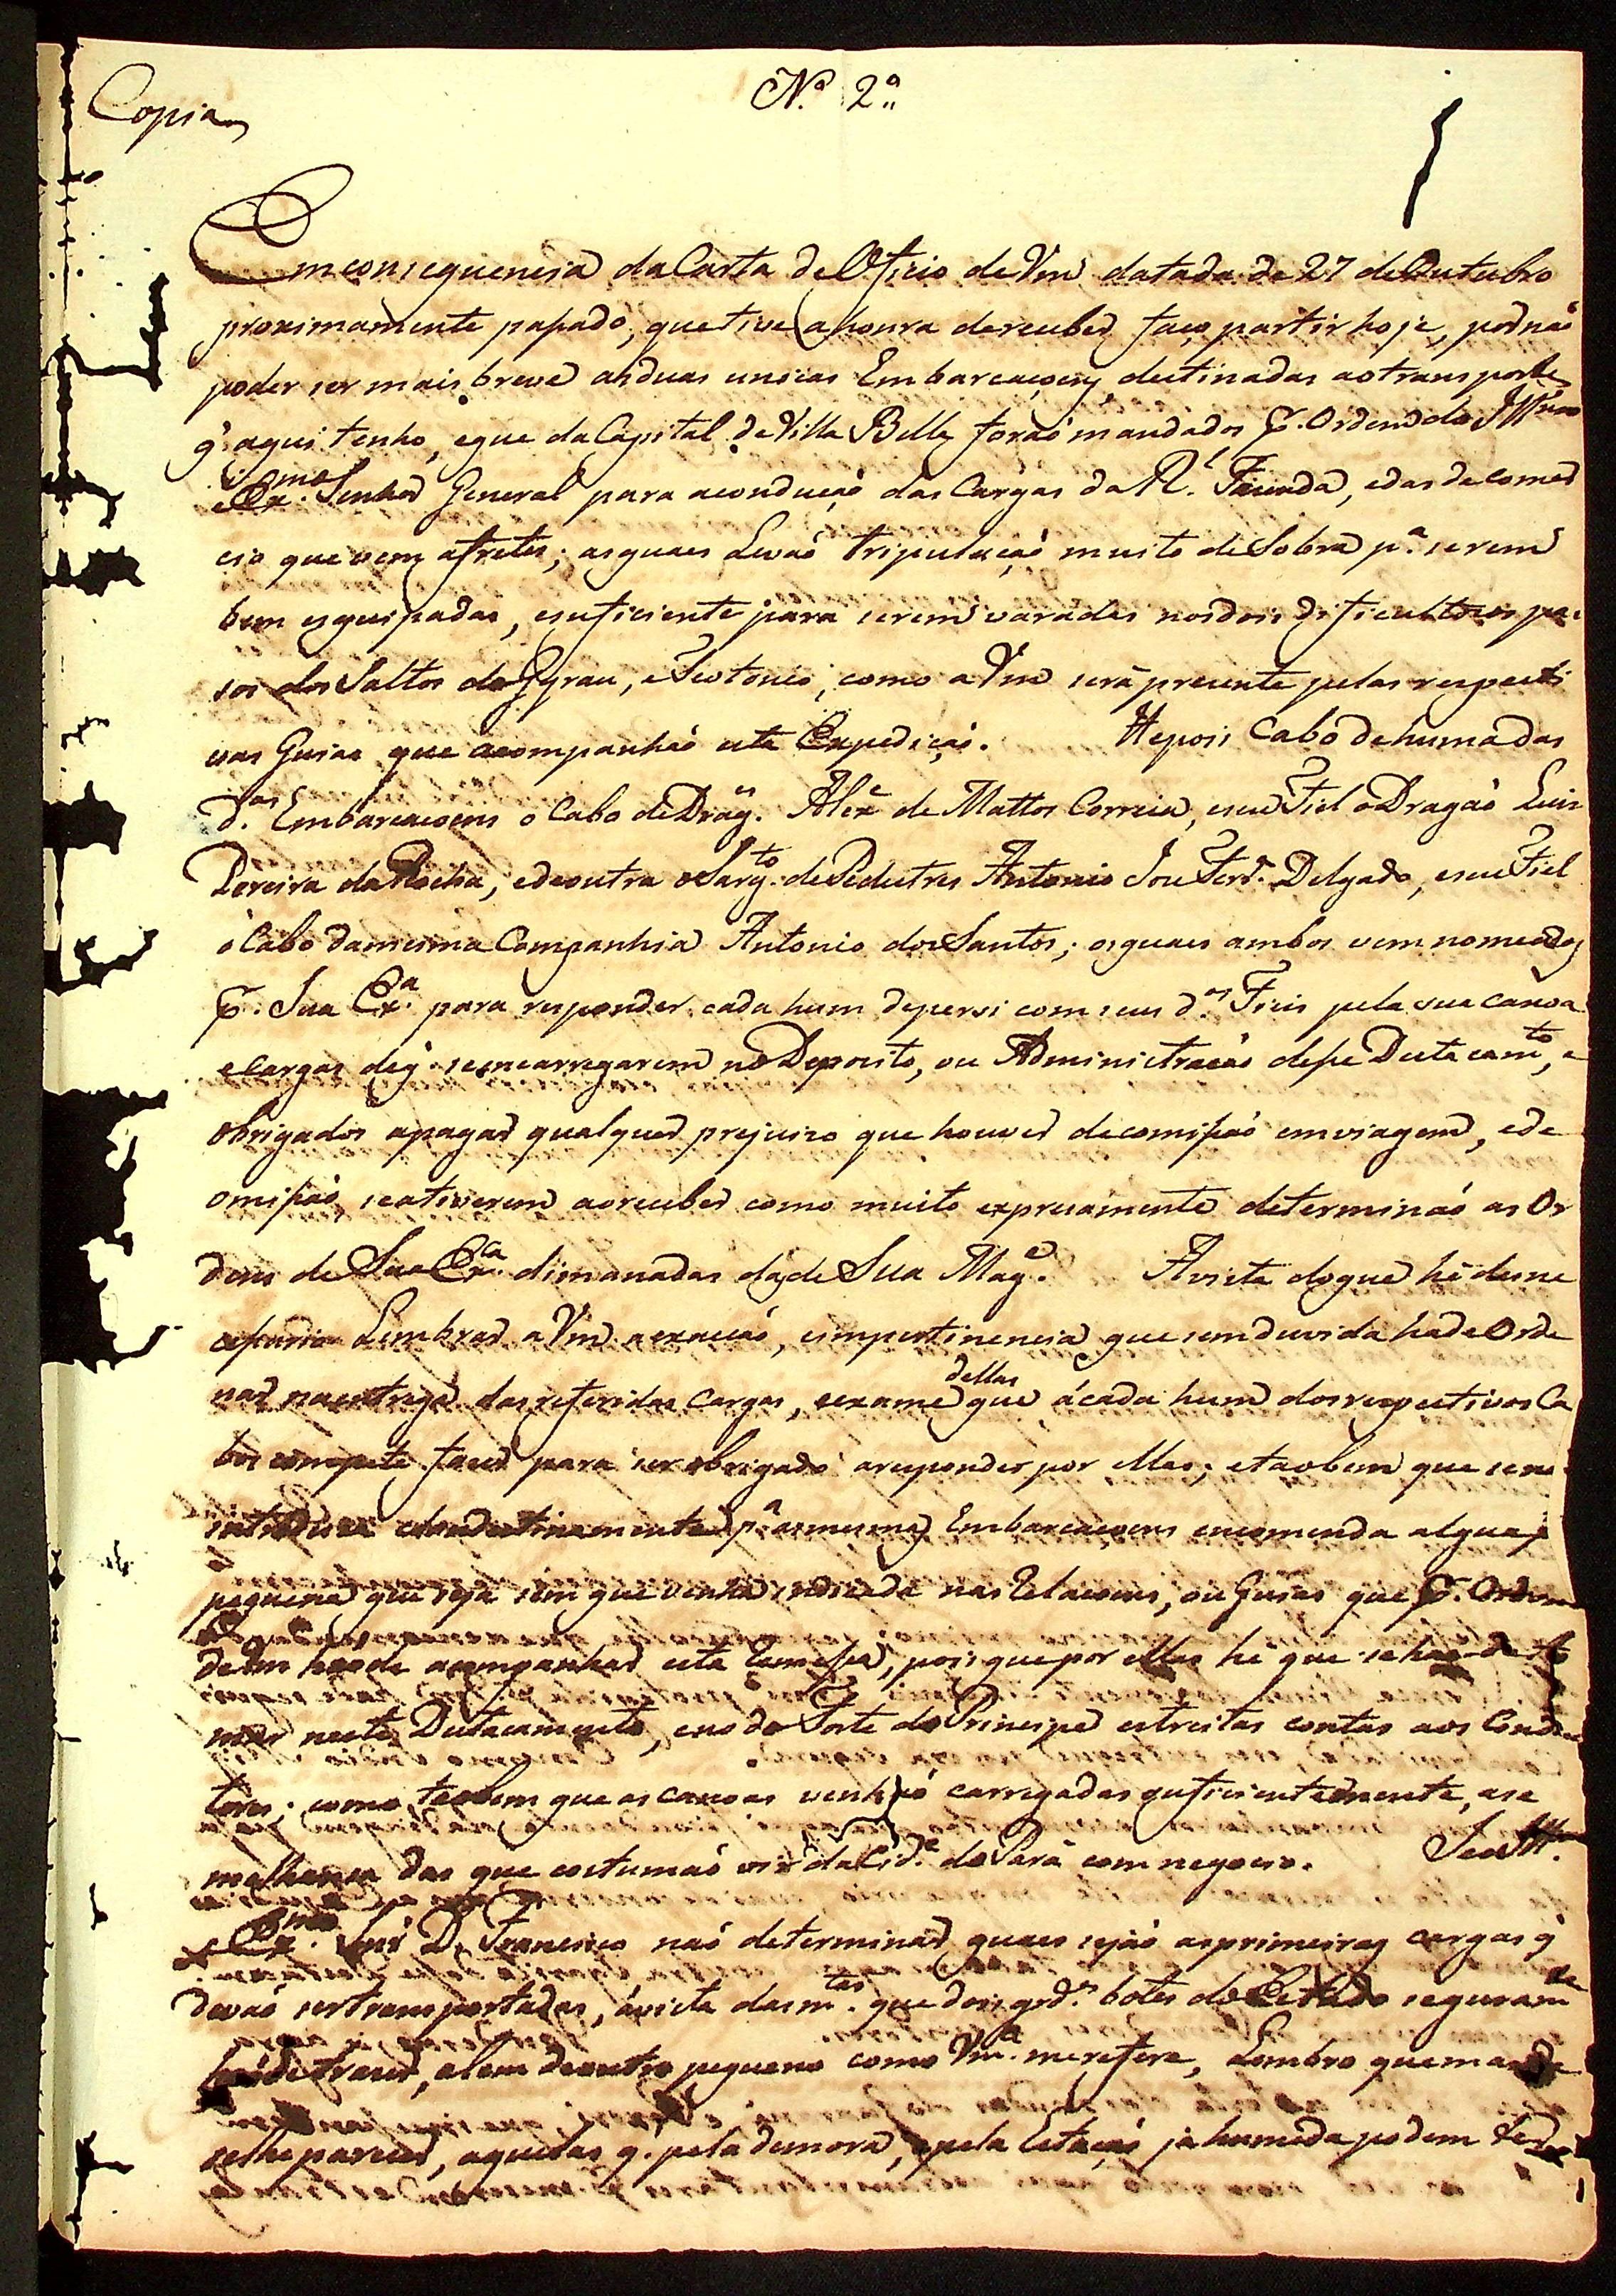 Copia
N.º 2.º
Em consequencia da Carta de Oficio de Vm.ce datada de 27 de Outubro
proximamente pasado, que tive a honra de receber, faço partir hoje, por naõ
poder ser mais breve as duas unicas Embarcaçoens destinadas ao transporte
q' aqui tenho, e que da Capital de Villa Bella foraõ mandados p.r Ordem do Ill.mo
e Ex.mo Senhor General para a conduçaõ das Cargas da R.l Fazenda, e das de comer
cio que vem a frete; as quaes Levaõ tripulaçaõ muito de Sobra p.a serem
bem esquipadas, e suficiente para serem varadas nos dois dificultozos pa
sos dos Saltos do Gyrau, e Teotonio, como a Vm.ce será prezente pelas respecti
vas Guias que acompanhaõ esta Expediçaõ. He pois Cabo de huma das
d.as Embarcacoens o Cabo de Drag.es Alex.e de Mattos Correia, e seu Fiel o Dragaõ Luis
Pereira da Rocha, e de outra o Sarg.to de Pedestres Antonio Joze Ferr.a Delgado, e seu Fiel
o Cabo da mesma Companhia Antonio dos Santos; os quaes ambos vem nomeados
p.r Sua Ex.a para responder cada hum de persi com seus d.os Fieis pela sua canoa
e cargas de q' se encarregarem no Deposito, ou Administraçaõ desse Destacam.to, e
obrigados a pagar qualquer prejuizo que houver de comissaõ em viagem, e de
omissaõ, se a tiverem ao receber como muito expresamente determinaõ as Or
dens de Sua Ex.ca dimanadas das de Sua Mag.e Avista do que hé desne
cessario Lembrar a Vm.ce a exacçaõ, e impertinencia que sem duvida há de Orde
nar na entrega das referidas Cargas, e exame dellas que á cada hum dos respectivos Ca
bos compete fazer para ser obrigado a responder por ellas; e taobem que se naõ
introduza clandestinamente p.a as mesmas Embarcaçoens encomenda alguã p
pequena que seja sem que venha indicada nas Relacoens, ou Guias que p.r Ordem
de Vm haõ de acompanhar esta Remessa, pois que por ellas hé que se haõ de to
mar neste Destacamento, e no do Forte do Principe estreitas contas aos Conduc
tores; como taobem que as canoas venhaõ carregadas suficientemente, a se
melhança das que costumaõ vir da Cid.e do Pará com negocio. Se o Ill.mo
e Ex.mo Snr. D. Francisco naõ determinar quaes sejaõ as primeiras cargas q'
devaõ ser transportadas, á vista das m.tas que dois gr.des botes do Estado seguram.te
haõ de trazer, alem de outro pequeno como Vm.ce me refere, Lembro que mande
se lhe parecer, aquelas q. pela demora, e pela Estaçaõ já humeda podem ter